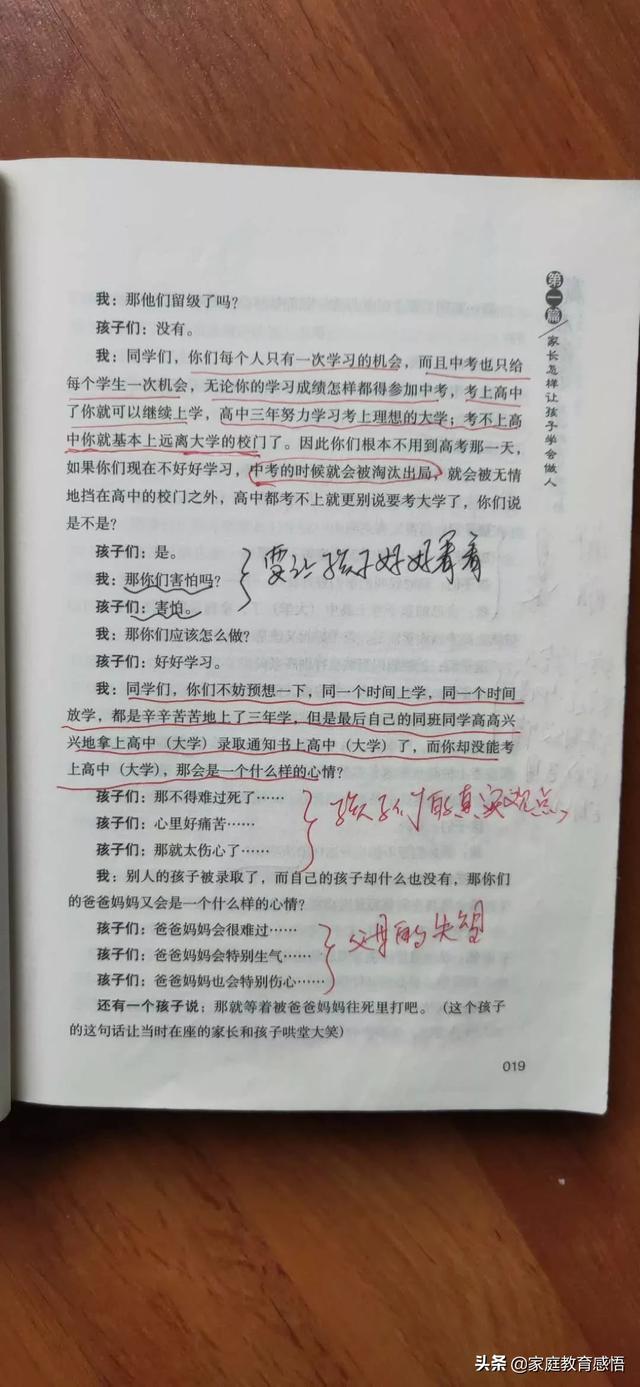 我：那他们留级了吗？
孩子们：没有。
我：同学们，你们每个人只有一次学习的机会，而且中考也只给
每个学生一次机会，无论你的学习成绩怎样都得参加中考，考上高中
了你就可以继续上学，高中三年努力学习考上理想的大学；考不上高
中你就基本上远离大学的校门了。因此你们根本不用到高考那一天，
如果你们现在不好好学习，中考的时候就会被淘汰出局，就会被无情
地挡在高中的校门之外，高中都考不上就更别说要考大学了，你们说
是不是？
孩子们：是。
我：那你们害怕吗？
孩子们：害怕。
要让孩子好好看看
我：那你们应该怎么做？
孩子们：好好学习。
我：同学们，你们不妨预想一下，同一个时间上学，同一个时间
放学，都是辛辛苦苦地上了三年学，但是最后自己的同班同学高高兴
兴地拿上高中（大学）录取通知书上高中（大学）了，而你却没能考
上高中（大学），那会是一个什么样的心情？
孩子们：那不得难过死了……
孩子们：心里好痛苦……
孩子们：那就太伤心了……
孩子们的真实观点
我：别人的孩子被录取了，而自己的孩子却什么也没有，那你们
的爸爸妈妈又会是一个什么样的心情？
孩子们：爸爸妈妈会很难过……
孩子们：爸爸妈妈会特别生气……
孩子们：爸爸妈妈也会特别伤心……
父母的失望
还有一个孩子说：那就等着被爸爸妈妈往死里打吧。（这个孩子
的这句话让当时在座的家长和孩子哄堂大笑）
第一篇
家长怎样让孩子学会做人
019
头条 @家庭教育感悟